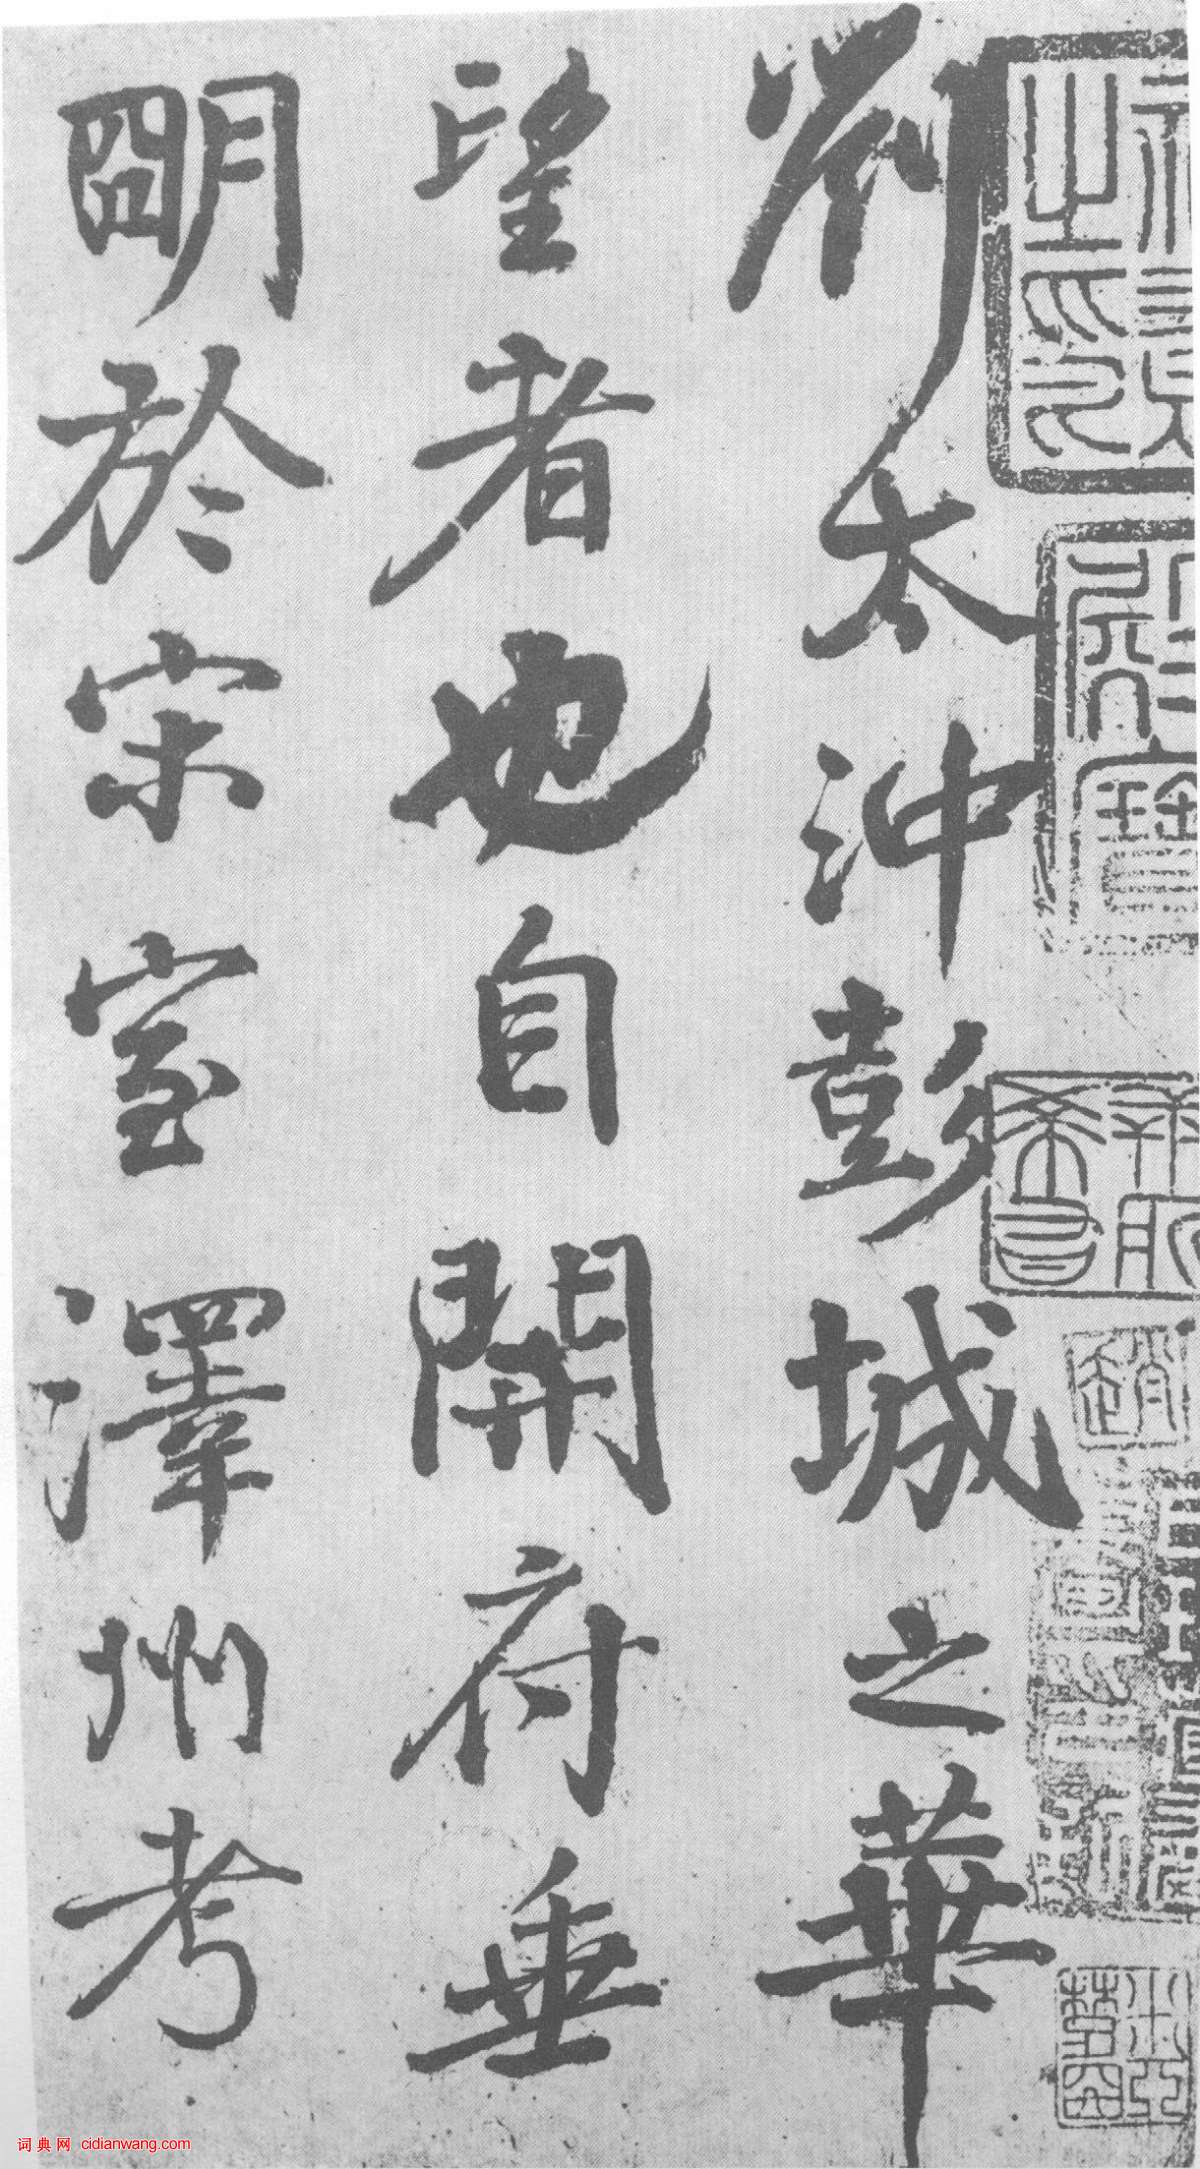 劉太沖彭城之華
望者也自開府垂
明於宋室澤州考
词典网 cidianwang.com